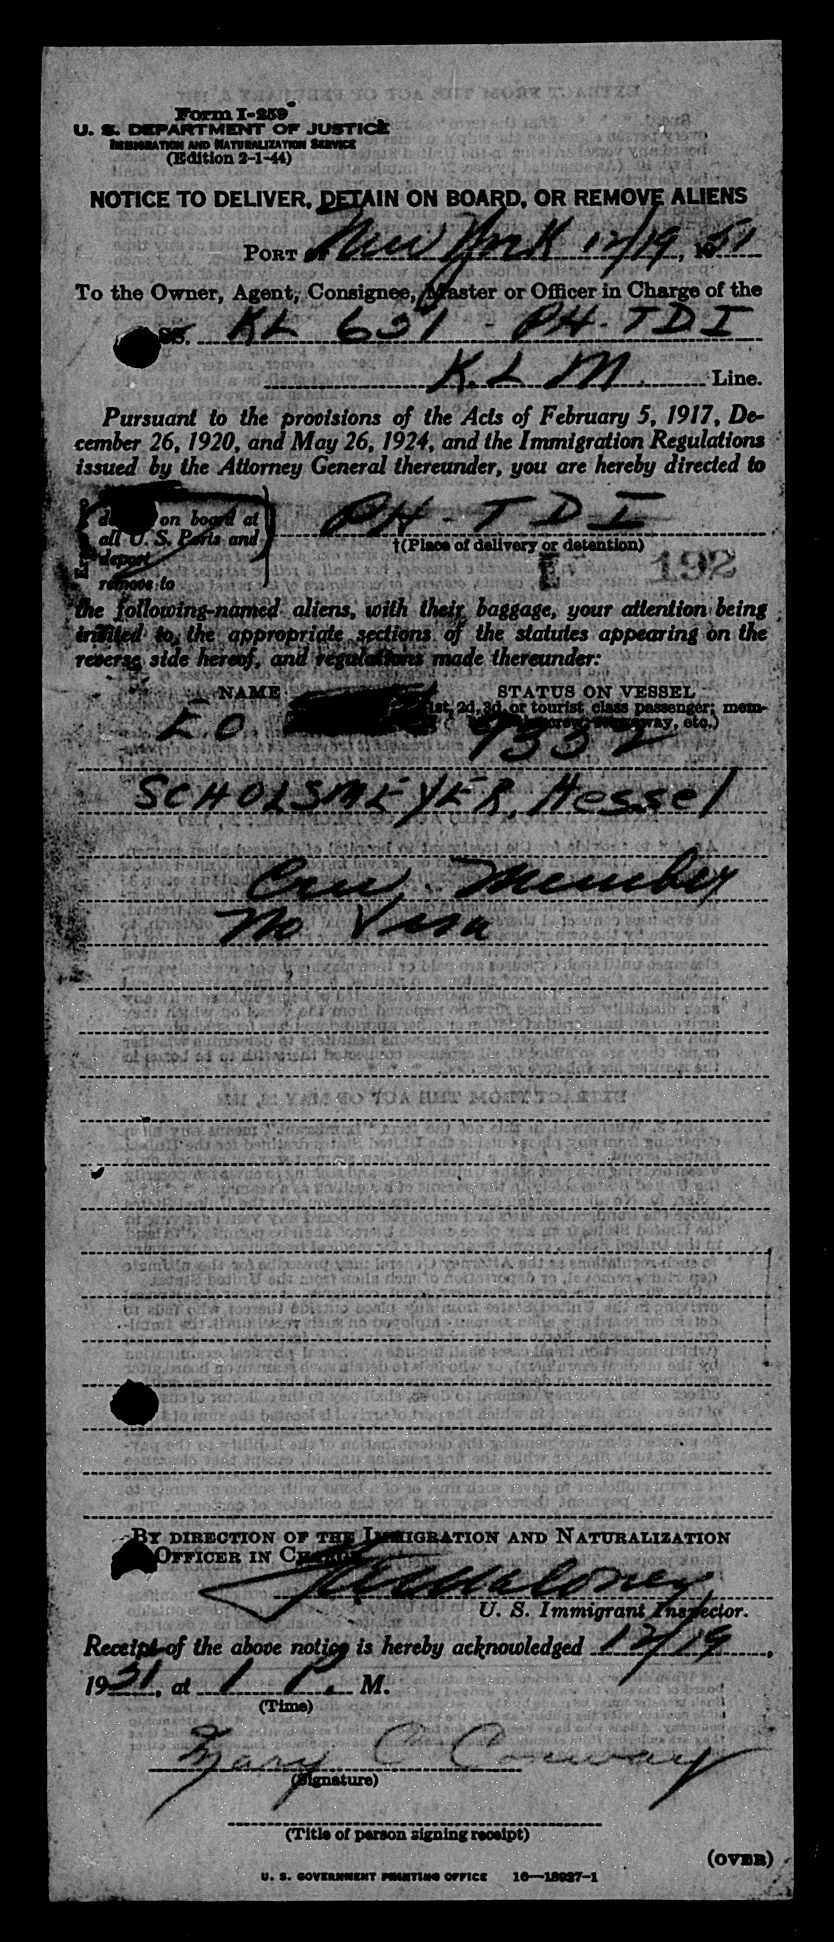 Form I-259
U. S. DEPARTMENT OF JUSTICE
IMMIGRATION AND NATURALIZATION SERVICE
(Edition 2-1-44)
NOTICE TO DELIVER, DETAIN ON BOARD, OR REMOVE ALIENS
PORT of New York 12/19, 1951
To the Owner, Agent, Consignee, Master or Officer in Charge of the
SS. KL 631 - PH-TDI
K.L.M. Line.
Pursuant to the provisions of the Acts of February 5, 1917, De-
cember 26, 1920, and May 26, 1924, and the Immigration Regulations
issued by the Attorney General thereunder, you are hereby directed to
on board at
all U. S. Ports and PH-TDI
deport †(Place of delivery or detention)
remove to 192
the following-named aliens, with their baggage, your attention being
invited to, the appropriate sections of the statutes appearing on the
reverse side hereof, and regulations made thereunder:
NAME STATUS ON VESSEL
1st, 2d, 3d, or tourist class passenger; mem-
E.O 9352 away, etc.)
SCHOLSMEYER, Hessel
Crew Member
No Visa
BY DIRECTION OF THE IMMIGRATION AND NATURALIZATION
OFFICER IN CHARGE
Maloney
U. S. Immigrant Inspector.
Receipt of the above notice is hereby acknowledged 12/19,
1951, at 1 P. M.
(Time)
Mary C Conway
(Signature)
(Title of person signing receipt)
(OVER)
U. S. GOVERNMENT PRINTING OFFICE 16—18937-1